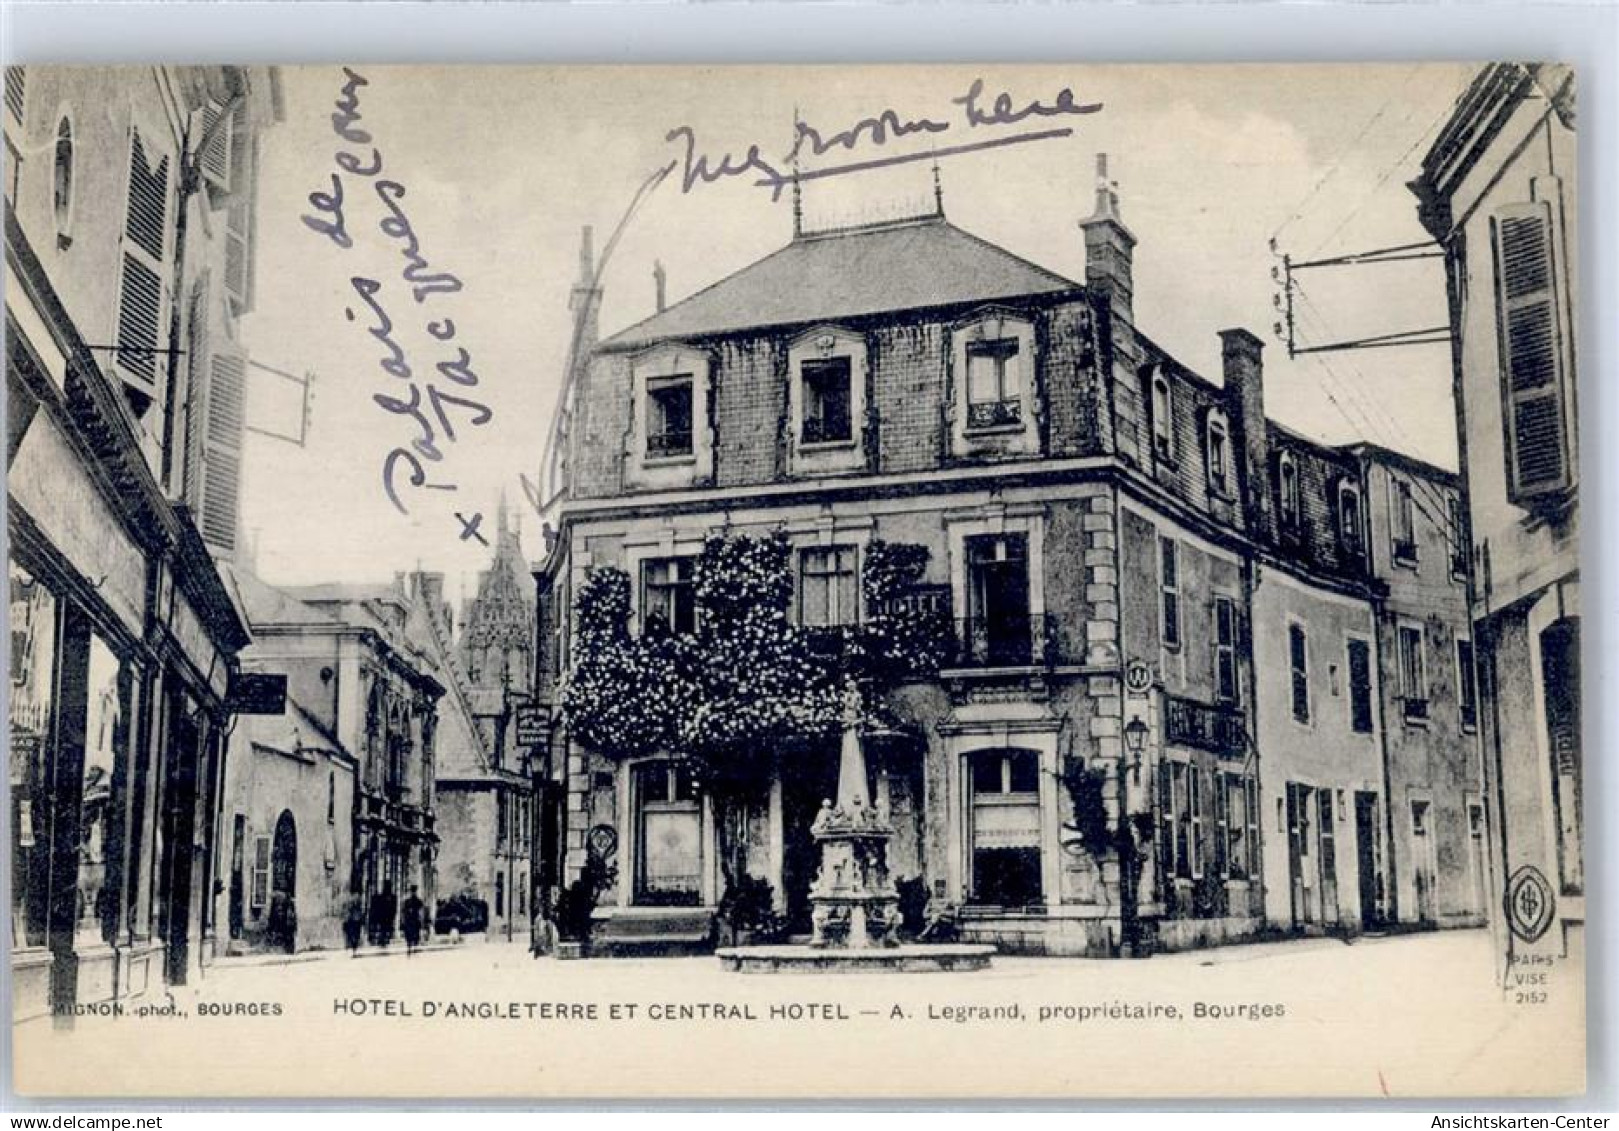 My room here
Palais de
Jacques Cour
x
HOTEL
MIGNON. phot., BOURGES
HOTEL D'ANGLETERRE ET CENTRAL HOTEL — A. Legrand, propriétaire, Bourges
PARIS
VISE
2152
Ansichtskarten-Center